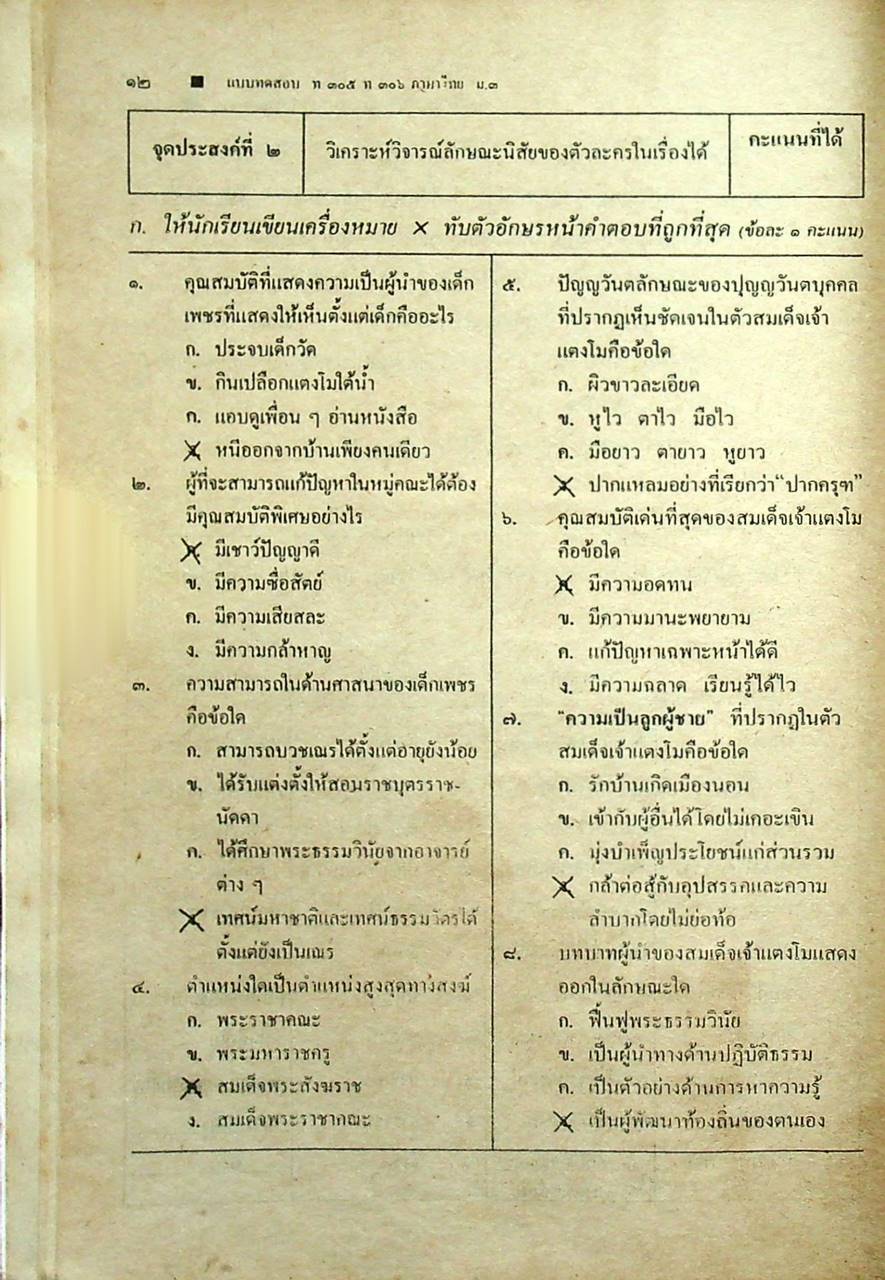 ๑๒ ■ แบบทดสอบ ท ๓๐๕ ท ๓๐๖ ภาษาไทย ม.๓
จุดประสงค์ที่ ๒
วิเคราะห์วิจารณ์ลักษณะนิสัยของตัวละครในเรื่องได้
คะแนนที่ได้
ก. ให้นักเรียนเขียนเครื่องหมาย × ทับตัวอักษรหน้าคำตอบที่ถูกที่สุด (ข้อละ ๑ คะแนน)
๑. คุณสมบัติที่แสดงความเป็นผู้นำของเด็ก
เพชรที่แสดงให้เห็นตั้งแต่เด็กคืออะไร
ก. ประจบเด็กวัด
ข. กินเปลือกแตงโมใต้น้ำ
ค. แอบดูเพื่อน ๆ อ่านหนังสือ
× หนีออกจากบ้านเพียงคนเดียว
๒. ผู้ที่จะสามารถแก้ปัญหาในหมู่คณะได้ต้อง
มีคุณสมบัติพิเศษอย่างไร
× มีเชาว์ปัญญาดี
ข. มีความซื่อสัตย์
ค. มีความเสียสละ
ง. มีความกล้าหาญ
๓. ความสามารถในด้านศาสนาของเด็กเพชร
คือข้อใด
ก. สามารถบวชเณรได้ตั้งแต่อายุยังน้อย
ข. ได้รับแต่งตั้งให้สอนราชบุตรราช-
นัดดา
ค. ได้ศึกษาพระธรรมวินัยจากอาจารย์
ต่าง ๆ
× เทศน์มหาชาติและเทศน์ธรรมวัตรได้
ตั้งแต่ยังเป็นเณร
๔. ตำแหน่งใดเป็นตำแหน่งสูงสุดทางสงฆ์
ก. พระราชาคณะ
ข. พระมหาราชครู
× สมเด็จพระสังฆราช
ง. สมเด็จพระราชาคณะ
๕. ปัญญวันตลักษณะของปุญญวันตบุคคล
ที่ปรากฏเห็นชัดเจนในตัวสมเด็จเจ้า
แตงโมคือข้อใด
ก. ผิวขาวละเอียด
ข. หูไว ตาไว มือไว
ค. มือยาว ตายาว หูยาว
× ปากแหลมอย่างที่เรียกว่า "ปากครุฑ"
๖. คุณสมบัติเด่นที่สุดของสมเด็จเจ้าแตงโม
คือข้อใด
× มีความอดทน
ข. มีความมานะพยายาม
ค. แก้ปัญหาเฉพาะหน้าได้ดี
ง. มีความฉลาด เรียนรู้ได้ไว
๗. "ความเป็นลูกผู้ชาย" ที่ปรากฏในตัว
สมเด็จเจ้าแตงโมคือข้อใด
ก. รักบ้านเกิดเมืองนอน
ข. เข้ากับผู้อื่นได้โดยไม่เคอะเขิน
ค. มุ่งบำเพ็ญประโยชน์แก่ส่วนรวม
× กล้าต่อสู้กับอุปสรรคและความ
ลำบากโดยไม่ย่อท้อ
๘. บทบาทผู้นำของสมเด็จเจ้าแตงโมแสดง
ออกในลักษณะใด
ก. ฟื้นฟูพระธรรมวินัย
ข. เป็นผู้นำทางด้านปฏิบัติธรรม
ค. เป็นตัวอย่างด้านการหาความรู้
× เป็นผู้พัฒนาท้องถิ่นของตนเอง